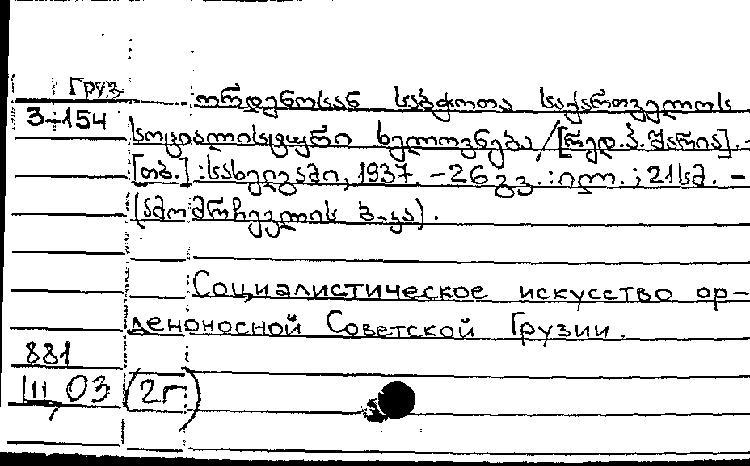 Груз
3-154
ორდენოსან საბჭოთა საქართველოს
სოციალისტური ხელოვნება / [რედ. პ. შარია]. -
[თბ.] : სახელგამი, 1937. - 26 გვ. : ილ. ; 21 სმ. -
(ამომრჩევლის ბ-კა).
Социалистическое искусство ор-
деноносной Советской Грузии.
881
III, 03 (2г)